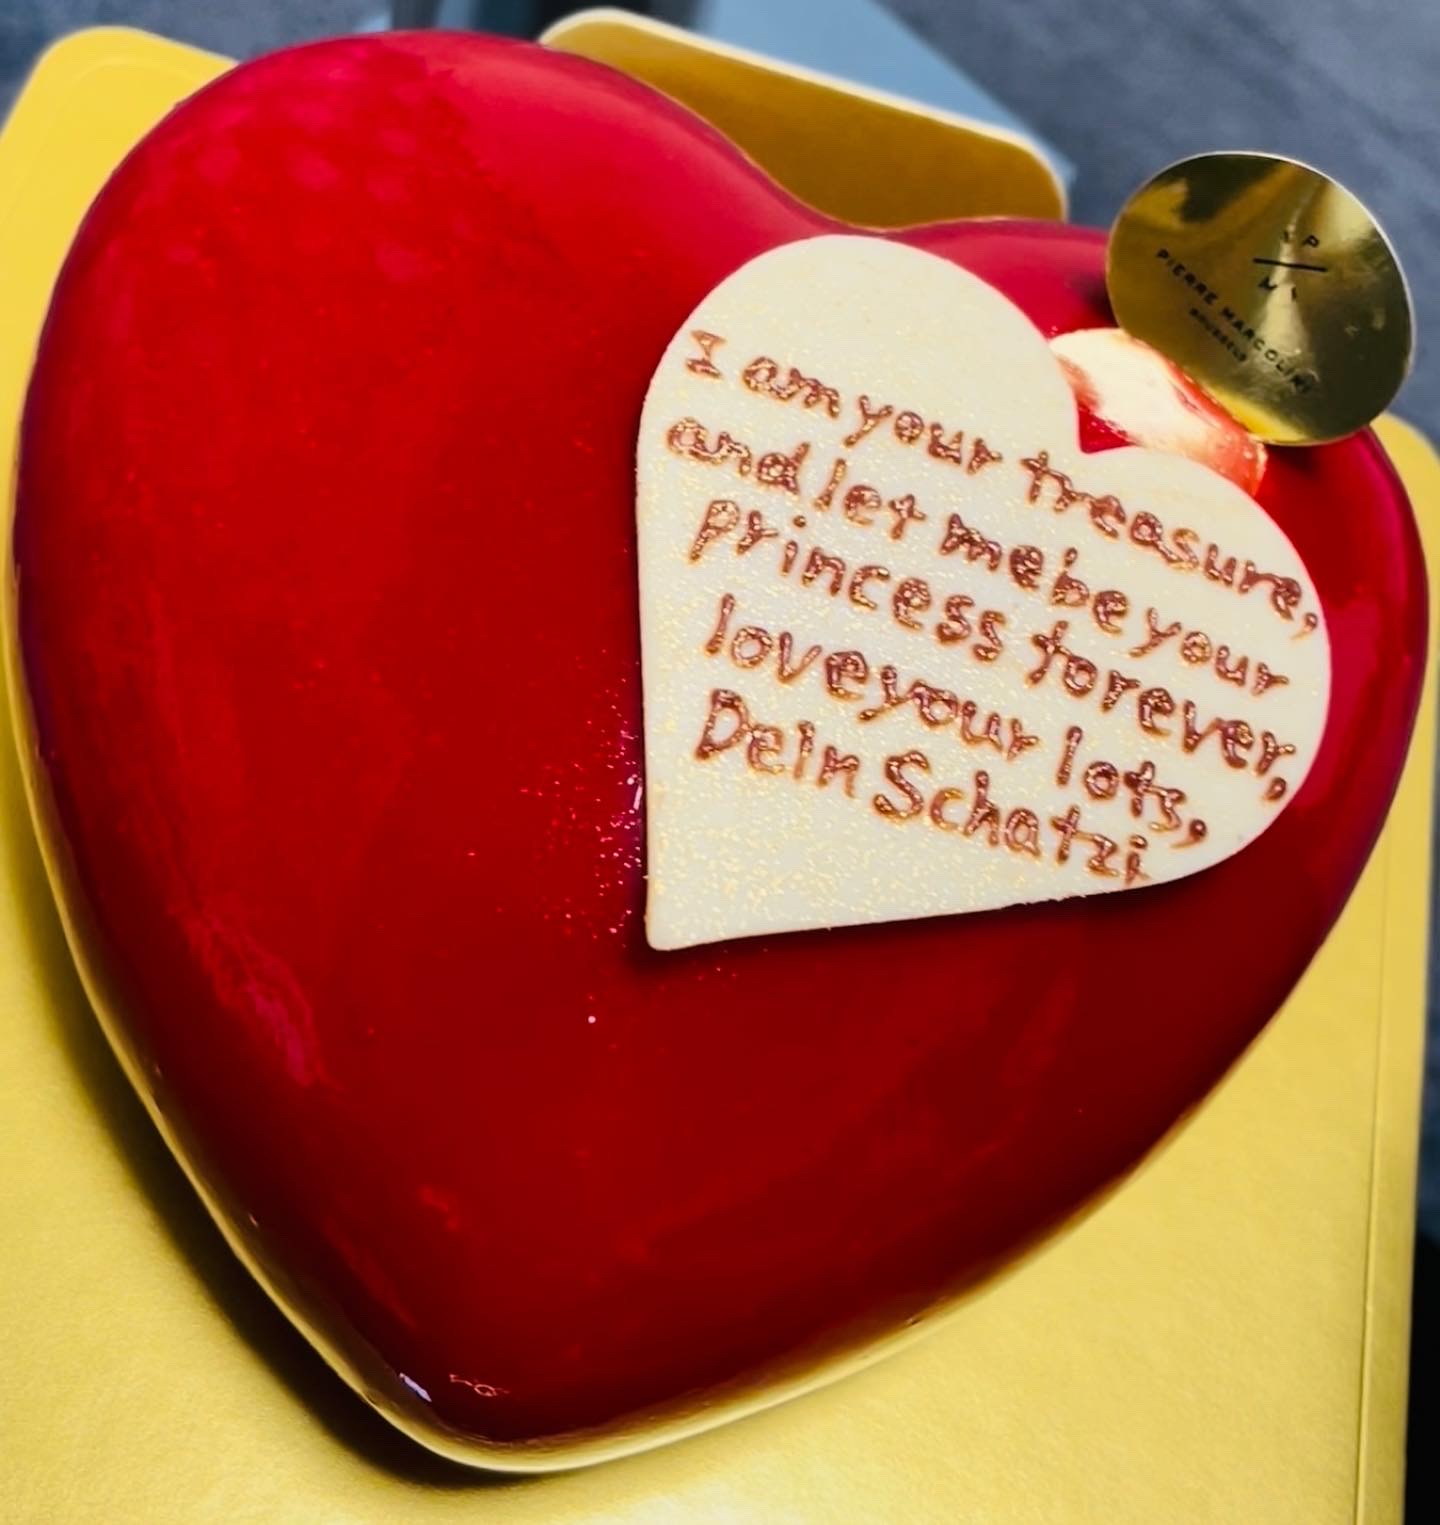 I am your treasure,
and let me be your
princess forever,
love your lots,
Dein Schatzi
P
M
PIERRE MARCOLINI
BRUSSELS